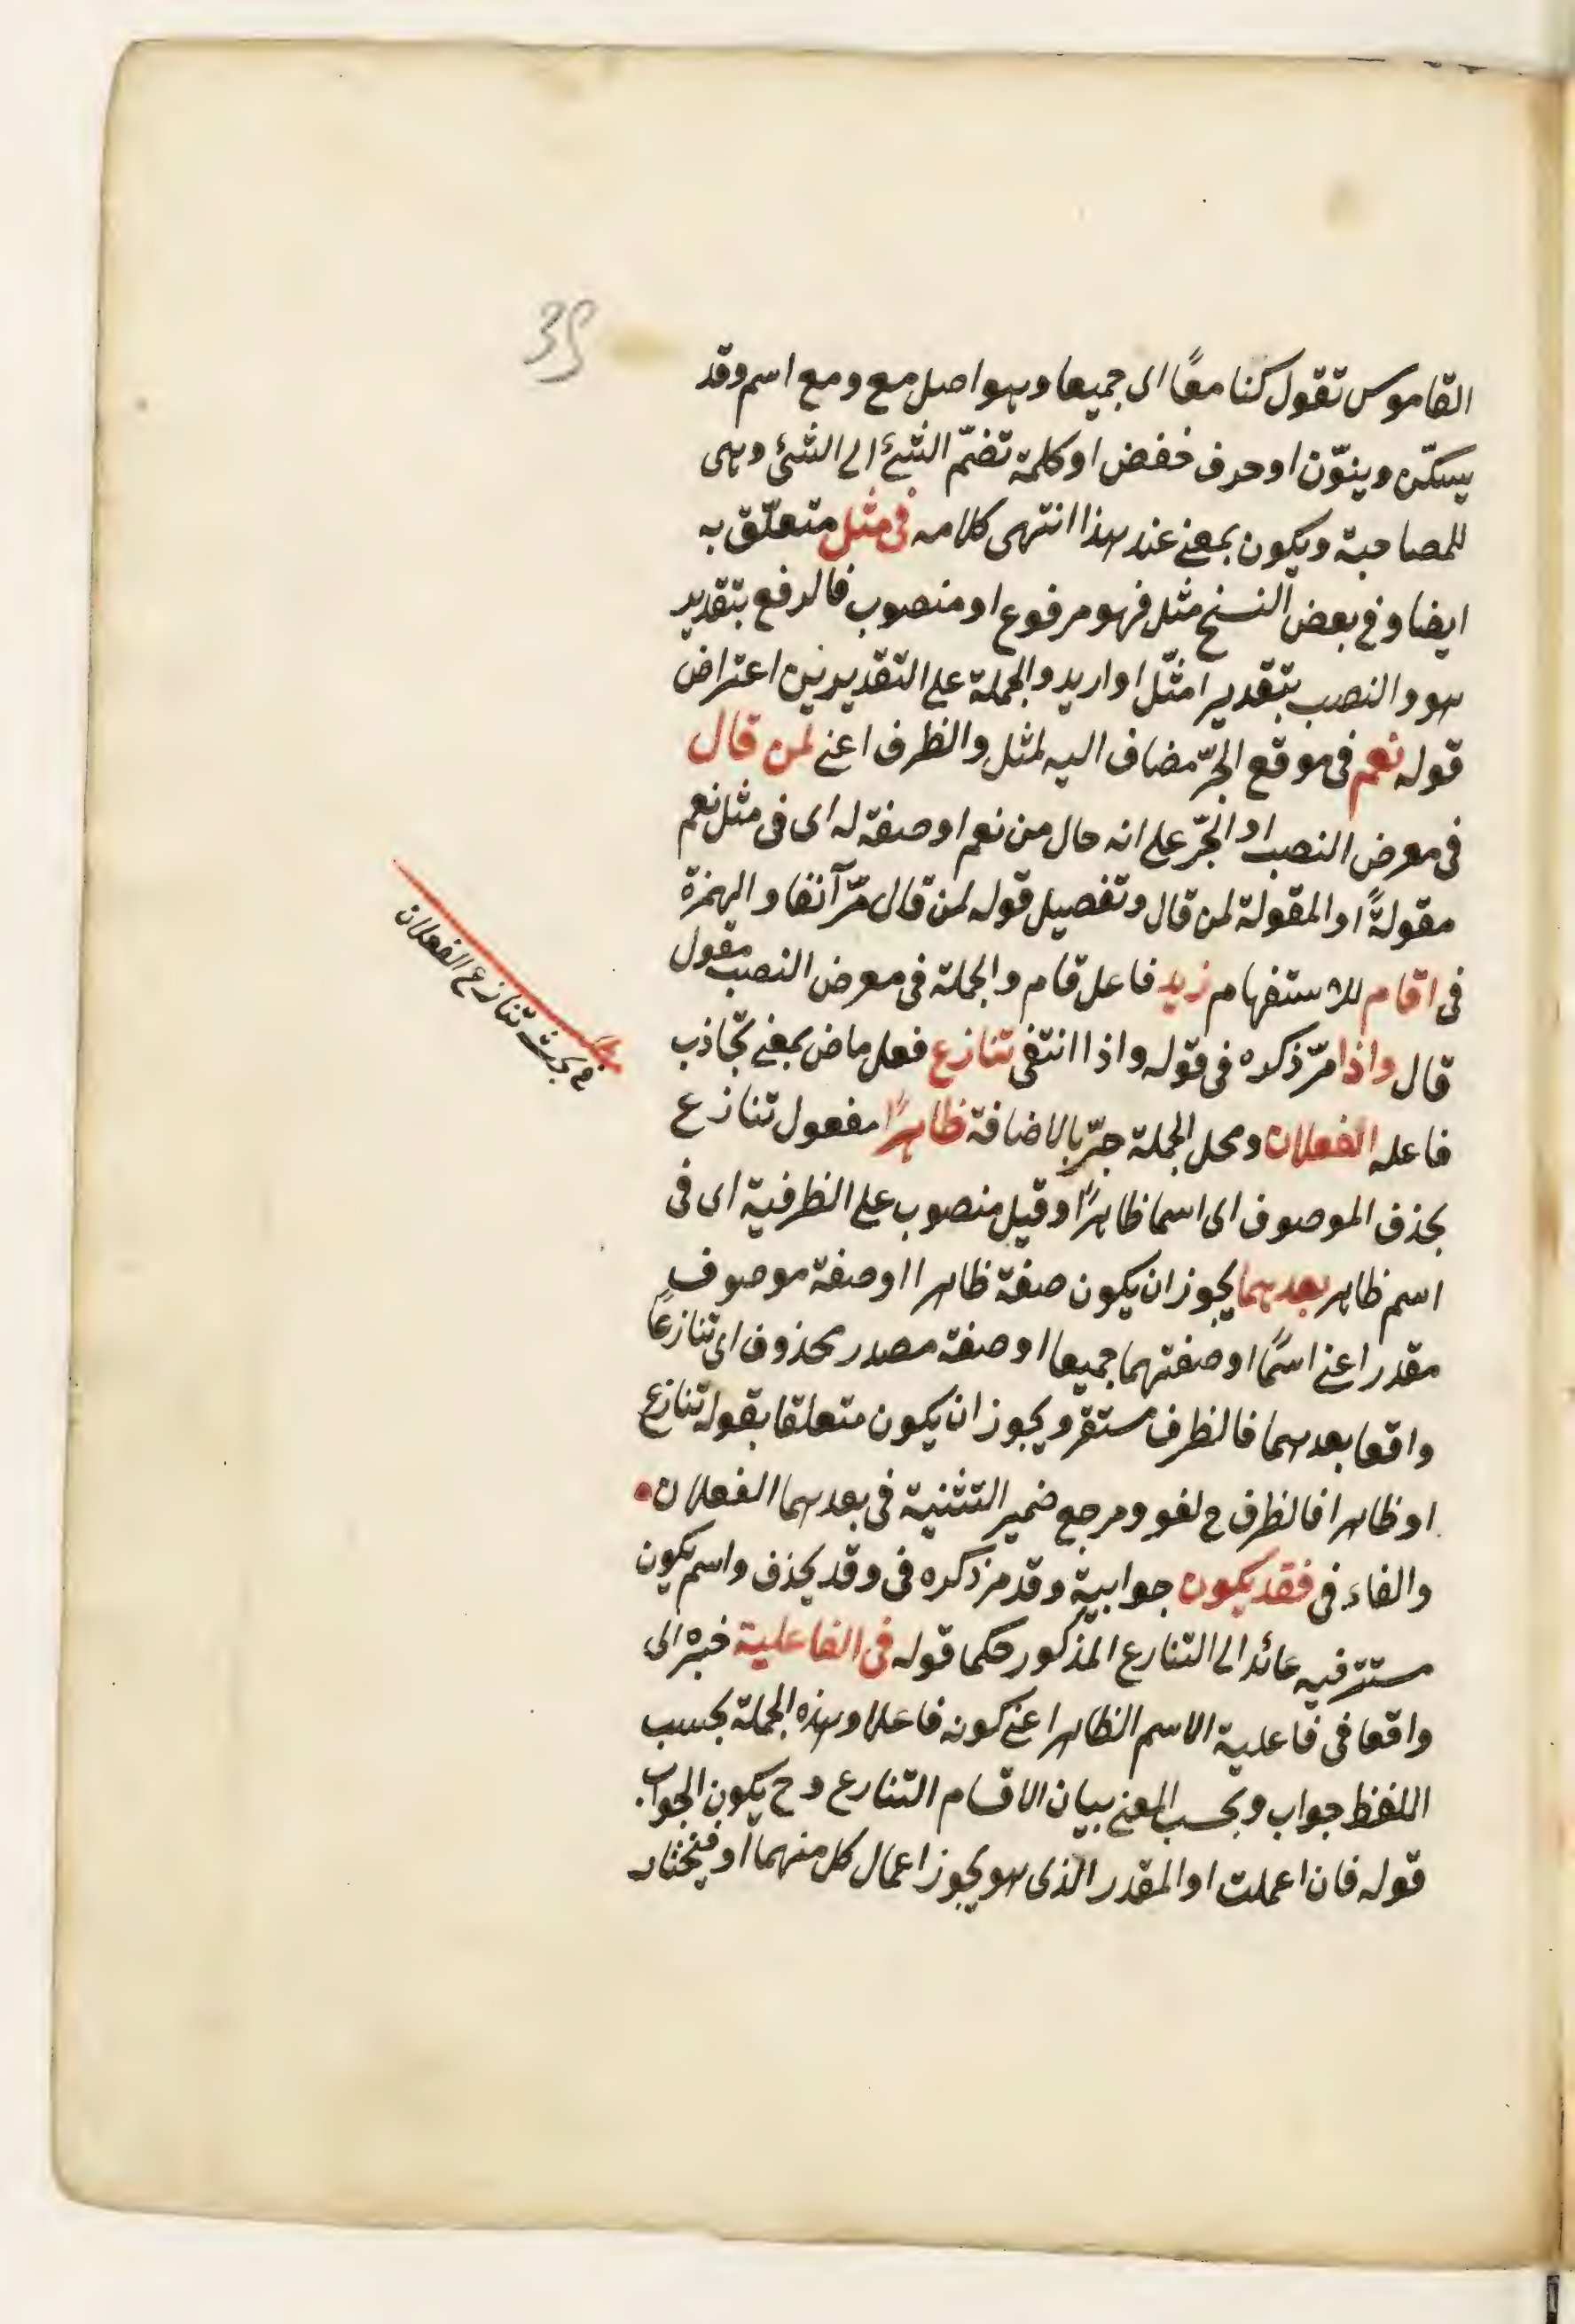 35
القاموس تقول كنا معًا اى جميعا وهو اصل مع ومع اسم وقد
يسكّن وينوّن او حرف خفض او كلمة تضمّ الشئ الى الشئ وهى
للمصاحبة ويكون بمعنى عند هذا انتهى كلامه فى مثل متعلّق به
ايضا وفى بعض النسخ مثل فهو مرفوع او منصوب فالرفع بتقدير
هو والنصب بتقدير امثّل او اريد والجملة على التقديرين اعتراض
قوله نعم فى موقع الجرّ مضاف اليه لمثل والظرف اعنى لمن قال
فى معرض النصب او الجرّ على انه حال من نعم او صفة له اى فى مثل نعم
مقولةً او المقولة لمن قال وتفصيل قوله لمن قال مرّ آنفا والهمزة
فى اقام للاستفهام زيد فاعل قام والجملة فى معرض النصب مقول
قال واذا مرّ ذكره فى قوله واذا انتفى تنازع فعل ماض بمعنى تجاذب
فاعله الفعلان ومحل الجملة جرّ بالاضافة ظاهرًا مفعول تنازع
بحذف الموصوف اى اسما ظاهرًا وقيل منصوب على الظرفية اى فى
اسم ظاهر بعدهما يجوز ان يكون صفة ظاهرا او صفة موصوف
مقدر اعنى اسمًا او صفتهما جميعا او صفة مصدر محذوف اى تنازعًا
واقعا بعدهما فالظرف مستقر ويجوز ان يكون متعلقا بقوله تنازع
او ظاهرا فالظرف ح لغو ومرجع ضمير التثنية فى بعدهما الفعلان
والفاء فى فقد يكون جوابية وقد مرّ ذكره فى وقد يحذف واسم يكون
مستتر فيه عائد الى التنازع المذكور حكما قوله فى الفاعلية خبره اى
واقعا فى فاعلية الاسم الظاهر اعنى كونه فاعلا وهذه الجملة بحسب
اللفظ جواب وبحسب المعنى بيان الاقسام التنازع وح يكون الجواب
قوله فان اعملت او المقدر الذى هو يجوز اعمال كل منهما او فيختار
بحث تنازع الفعلان